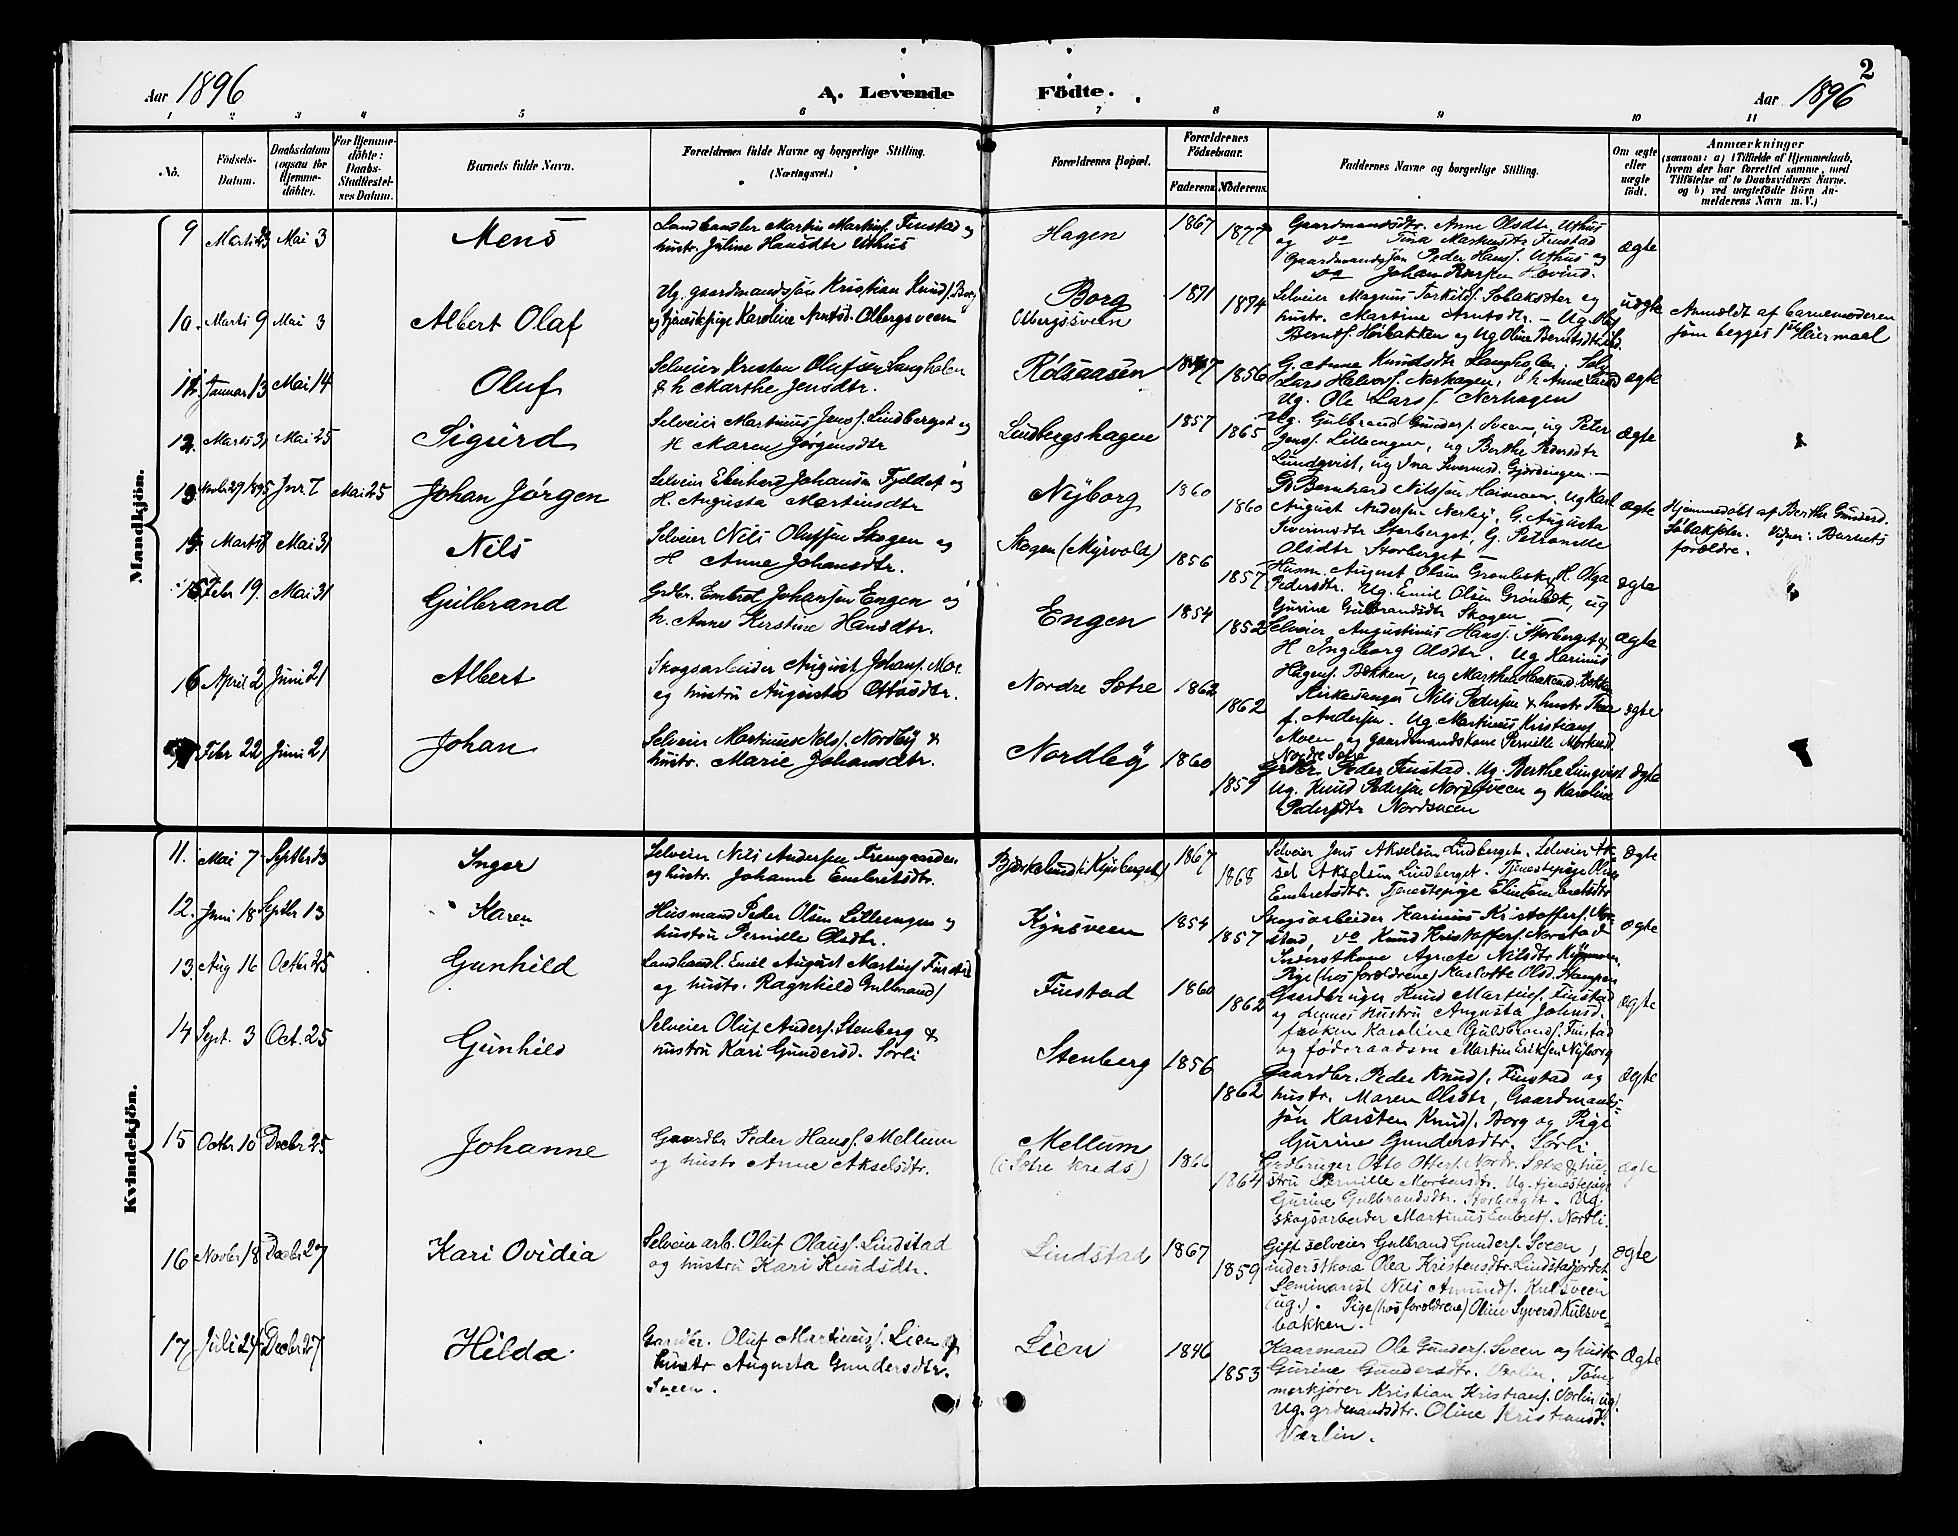 2
Aar 1896
A. Levende Födte.
Aar 1896
1 2 3 4 5 6 7 8 9 10 11
No.
Födsels-Datum.
Daabsdatum (ogsaa for Hjemmedöbte).
For Hjemmedöbte: Daabs-Stadfæstelses Datum.
Barnets fulde Navn.
Forældrenes fulde Navne og borgerlige Stilling.
(Næringsvei.)
Forældrenes Bopæl.
Forældrenes Födselsaar.
Faderens. Moderens.
Faddernes Navne og borgerlige Stilling.
Om ægte eller uægte födt.
Anmærkninger
(saasom: a) i Tilfælde af Hjemmedaab, hvem der har forrettet samme, med Tilföielse af to Daabsvidners Navne. og b) ved uægtefödte Börn Anmelderens Navn m. V.)
Mandkjön.
9 Marts 23 Mai 3
Mens
Landhandler Martin Martins. Finstad og
hustr. Juline Hansdtr Uthus
Hagen
1867 1877
Gaardmandsdtr. Anne Olsdtr. Uthus
og do Tina Martinsdtr Finstad
Gaardmandssøn Peder Hans. Uthus og
do Johan
ægte
10. Marts 9 Mai 3
Albert Olaf
Ug. gaardmandssøn Kristian Knuds. Borg
og tjenestepige Karoline Arntsd. Olbergsveen
Borg
Olbergsveen
1871 1874
Selveier Magnus Torkils. Søbaksæter og
hustr. Martine Arntsdtr. – Ug Olaf
Bernts. Høibakken og Ug Oline Berntsdtr
uægte
Anmeldt af barnemoderen
som begges 1ste Leiermaal
11. Januar 13 Mai 14
Oluf
Selveier Kresten Olufsen Langholen
& h Marthe Jensdtr
Rølsaasen
1856
G. Anne Knudsdtr Langholen Selv.
Lars Halvors. Nerhagen, & h Anne Larsd
Ug. Ole Lars. Nerhagen
ægte
12. Marts 31 Mai 25
Sigurd
Selveier Martinus Jens. Lindberget og
H Maren Jørgensdtr
Lindbergshagen
1857 1865
Ug. Gulbrand Gunders. Sveen, ug Peter
Jens. Lillengen, ug Berthe Pedersdtr
Lundqvist, ug Ina Gjørdingen. –
ægte
13 Novbr 29 1895 Jnr. 7 Mai 25
Johan Jørgen
Selveier Eberhard Johansen Fjeldet og
H. Augusta Martinsdtr
Nyborg
1860 1860
G. Bernhard Nilssøn Haimoen, Ug Karl
August Andersen Nerby, G. Augusta
Storberget, G. Petronelle
Olsdtr Storberget –
ægte
Hjemmedøbt af Berthe Gundersd.
Søbakseter. Vidner: Barnets
forældre.
14 Marts 8 Mai 31
Nils
Selveier Nils Olufsen Skogen og
H Anne Johansdtr.
Skogen (Myrvold)
1856 1857
Husm. August Olsen Grønbek, H. Olga
Pedersdtr. Ug. Emil Olsen Grønbek, ug
Gurine Gulbrandsdtr Skogen
ægte
15 Febr 19. Mai 31
Gulbrand
Grdbr. Embret Johansen Engen og
h. Anne Kirstine Hansdtr.
Engen
1854 1852
Selveier Augustinus Hans. Storberget &
H Ingeborg Olsdtr. Ug Karinus
Hagens. Bekken, ug Marthe Haakensd Bekken
ægte
16 April 2 Juni 21
Albert
Skogsarbeider August Johans. Moe
og hustru Augusta Ottosdtr.
Nordre Sætre
1862 1862
Kirkesanger Nils Pedersen & hustr
f. Andersen. Ug Martinus Kristians.
Moen og gaardmandskone Pernille Mortensd.
Nordre Sætre
ægte
17 Febr 22 Juni 21
Johan
Selveier Martinus Nils. Nordby &
hustr. Marie Johansdtr.
Nordby
1860 1859
Grdbr. Peder Finstad. Ug. Berthe Lunqvist
Ug. Knud Pedersen Nordsveen og Karoline
Pedersdtr Nordsveen
ægte
Kvindekjön.
11. Mai 7 Septbr 13
Inger
Selveier Nils Andersen Fremgaarden
og hustr. Johanne Embretsdtr.
Bjørkelund (i Kynberget)
1867 1868
Selveier Jens Akselsen Lindberget. Selveier Ak-
sel Akselsen Lindberget. Tjenestepige Oline
Embretsdtr. Tjenestepige Elin Embretsdtr
ægte
12. Juni 18 Septbr 13
Karen
Husmand Peder Olsen Lillengen og
hustru Pernille Olsdtr.
Kynsveen
1854 1857
Skogsarbeider Karinus Kristoffers. Nor-
stad, do Knud Kristoffers. Norstad
Inderstkone Agnete Nilsdtr Kynmoen,
Pige (hos forældrene) Karlotte Olsd. Stampen
ægte
13. Aug 16 Octbr 25
Gunhild
Landhandl. Emil August Martins. Finstad
og hustr. Ragnhild Gulbrands.
Finstad
1860 1862
Gaardbruger Knud Martins. Finstad
og dennes hustru Augusta Johnsd.
frøken Karoline Gulbrands. Finstad
og føderaadsm Martin Eriksen Nyborg
ægte
14 Sept. 3 Oct. 25
Gunhild
Selveier Oluf Anders. Stenberg &
hustru Kari Gundersd. Sørli
Stenberg
1856 1862
Gaardbr. Peder Knuds. Finstad og
hustr. Maren Olsdtr, Gaardmands-
søn Karsten Knuds. Borg og Pige
Gurine Gundersdtr. Sørli.
ægte
15 Octbr 10 Decbr 25
Johanne
Gaardbr Peder Hans. Mellum
og hustr Anne Akselsdtr.
Mellum
(i Sætre kreds)
1866 1864
Jordbruger Otto Otters. Nordr. Sætre & hu-
stru Pernille Mortensdtr. Ug. tjenestepige
Gurine Gulbrandsdtr. Storberget. Ug.
skogsarbeider Martinus Embrets. Nordli.
ægte
16 Novbr 18 Decbr 27
Kari Ovidia
Selveier arb. Oluf Olaus. Lindstad
og hustru Kari Knudsdtr.
Lindstad
1867 1859
Gift selveier Gulbrand Gunders. Sveen,
inderstkone Olea Kristensdtr. Lindstadjordet
Seminarist Nils Amunds. Kulsveen
(ug.). Pige (hos forældrene) Oline Syversd Kulsve-
bakken.
ægte
17 Juli 24 Decbr 27
Hilda
Gaardbr. Oluf Martinus. Lien og
hustr Augusta Gundersdtr.
Sveen.
Lien
1846 1853
Kaarmand Ole Gunders. Sveen og hustr.
Gurine Gundersdtr. Værlin, Tøm-
merkjører Kristian Kristians. Værlin (ug).
Ug. grdmandsdtr. Oline Kristiansd.
Værlin.
ægte